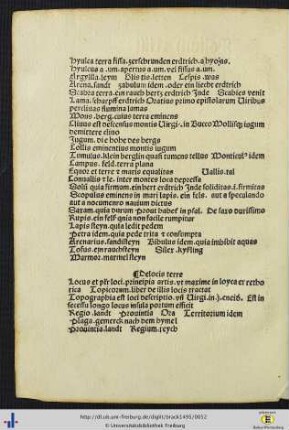 Hyulca terra fissa. zerschrunden erdtrich. a hyozus.
Hyulcus a .um. apertus a .um. vel fissus a .um.
Argylla. leym Olis tis. letten Cespis. was
Arena. sandt zabulum idem. oder ein liecht erdtrich
Scabra terra. ein rauch hertz erdtrich Inde Scabies venit
Lama. scharpff erdtrich Oratius primo epistolarum Viribus
perclinas flumina lamas
Mons. berg. cuius terra eminens
Cliuus est descensus montis Virgi. in Bucco Mollisq3 iugum
demittere cliuo
Jugum. die hohe des bergs
Collis eminentius montis iugum
Tumulus. klein berglin quasi tumens tellus Monticulus idem
Campus. feld. terra plana
Equor et terre et maris equalitas Vallis. tal
Conuallis x le. inter montes loca depressa
Solum quia firmum. ein hert erdtrich Inde soliditas .i. firmitas
Scopulus eminens in mari lapis. ein fels. aut a speculando
aut a nocumento nauium dictus
Saxum. quia durum
Rupis. ein felss quia non facile rumpitur
Lapis steyn. quia ledit pedem
Petra idem. quia pede trita et consumpta
Arenarius. sandsteyn Bibulus idem. quia imbibit aquas
Tofus. ein rauchsteyn Silex. kyssling
Marmor. marmel steyn
De locis terre
Locus et pluraliter loci. principia artis. vt maxime in loyca et retho
rica Topicorum. liber de illis locis tractat
Topographia est loci descriptio. vt Virgi. in .j. eneid. Est in
secessu longo locus insula portum efficit
Regio. landt Prouincia Ora Territorium idem
Plaga. geneck nach dem hymel
Prouintia. landt Regnum. reych
http://dl.ub.uni-freiburg.de/diglit/brack1495/0052
© Universitätsbibliothek Freiburg